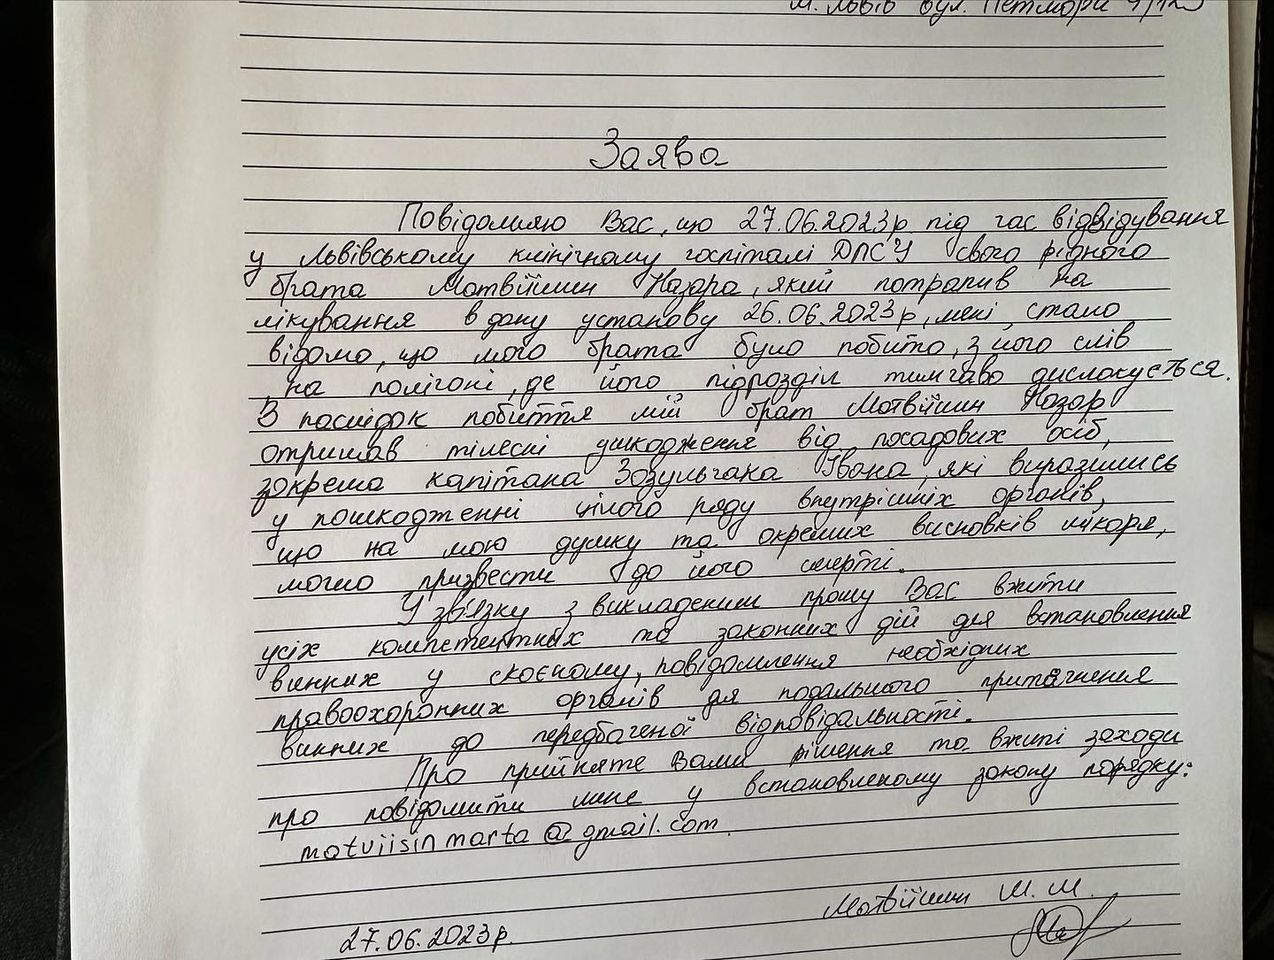 м. Львів вул.
Заява
Повідомляю Вас, що 27.06.2023р під час відвідування
у Львівському клінічному госпіталі ДПСУ свого рідного
брата Матвіїшин Назара, який потрапив на
лікування в дану установу 26.06.2023р, мені стало
відомо, що мого брата було побито, з його слів
на полігоні, де його підрозділ тимчаво дислокується.
В наслідок побиття мій брат Матвіїшин Назар
отримав тілесні ушкодження від посадових осіб,
зокрема капітана Зозульчака Івана, які виразились
у пошкодженні цілого ряду внутрішніх органів,
що на мою думку та окремих висновків лікаря,
могло призвести до його смерті.
У зв'язку з викладеним прошу Вас вжити
усіх компетентних та законних дій для встановлення
винних у скоєному, повідомлення необхідних
правоохоронних органів для подальшого притягнення
винних до передбаченої відповідальності.
Про прийняте Вами рішення та вжиті заходи
про повідомити мене у встановленому закону порядку:
matviisin marta@gmail.com.
Матвіїшин М. М.
27.06.2023р.